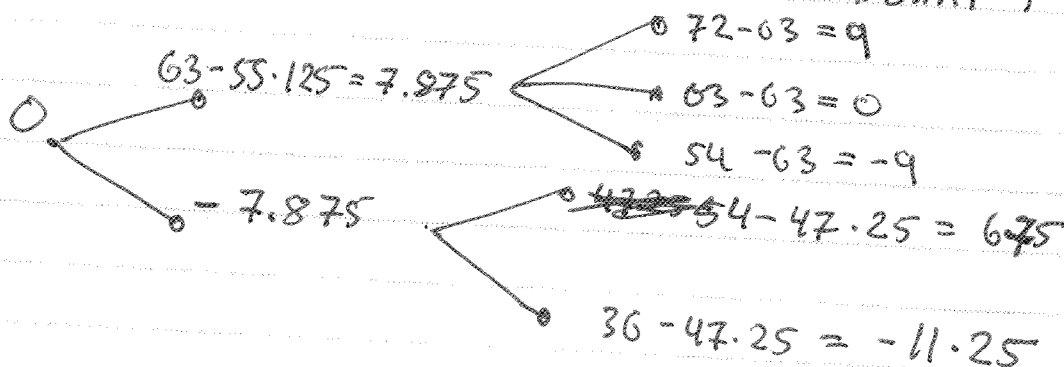 72-63 = 9
63-55.125 = 7.875
63-63 = 0
0
54-63 = -9
-7.875
54-47.25 = 6.75
36-47.25 = -11.25